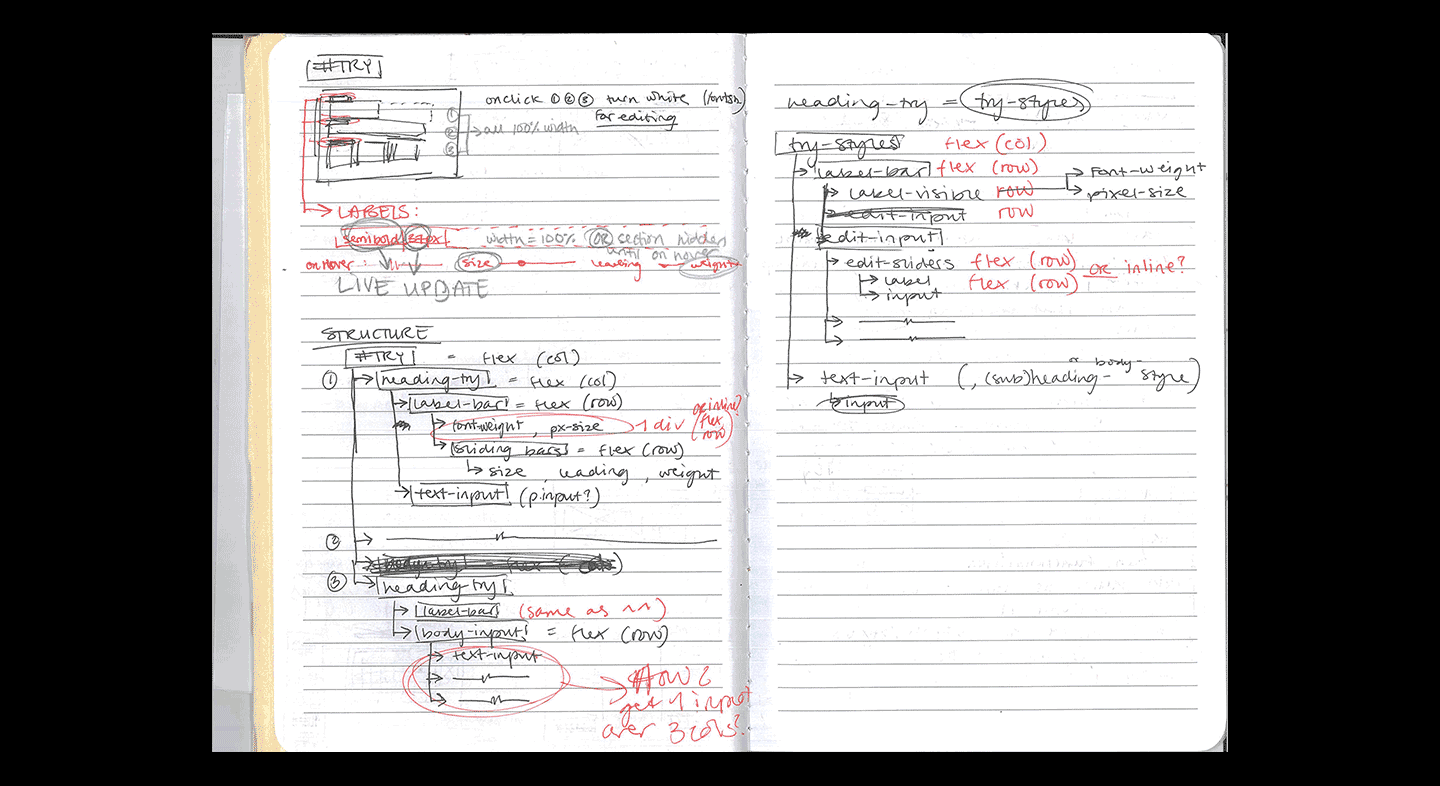 #TRY
onclick ① ② ③ turn white
for editing
①
② → all 100% width
③
→ LABELS:
semibold px width = 100% OR section hidden
until on hover
on hover : size leading weight
LIVE UPDATE
STRUCTURE
#TRY = flex (col)
① → heading-try = flex (col)
→ label-bar = flex (row)
→ font-weight, px-size 1 div (or inline? flex row)
→ sliding bars = flex (row)
↳ size, leading, weight
→ text-input (p.input?)
② →
→ body-try = flex (cols)
③ → heading-try
→ label-bar (same as ^^)
→ body-input = flex (row)
→ text-input
→
→
How 2
get 1 input
over 3 cols?
heading-try = try-styles
try-styles flex (col)
→ label-bar flex (row) → Font-weight
→ label-visible row → pixel-size
→ edit-input row
edit-input
→ edit-sliders flex (row) OR inline?
→ label flex (row)
→ input
→
→
→ text-input (, (sub)heading- or body- style)
↳ input